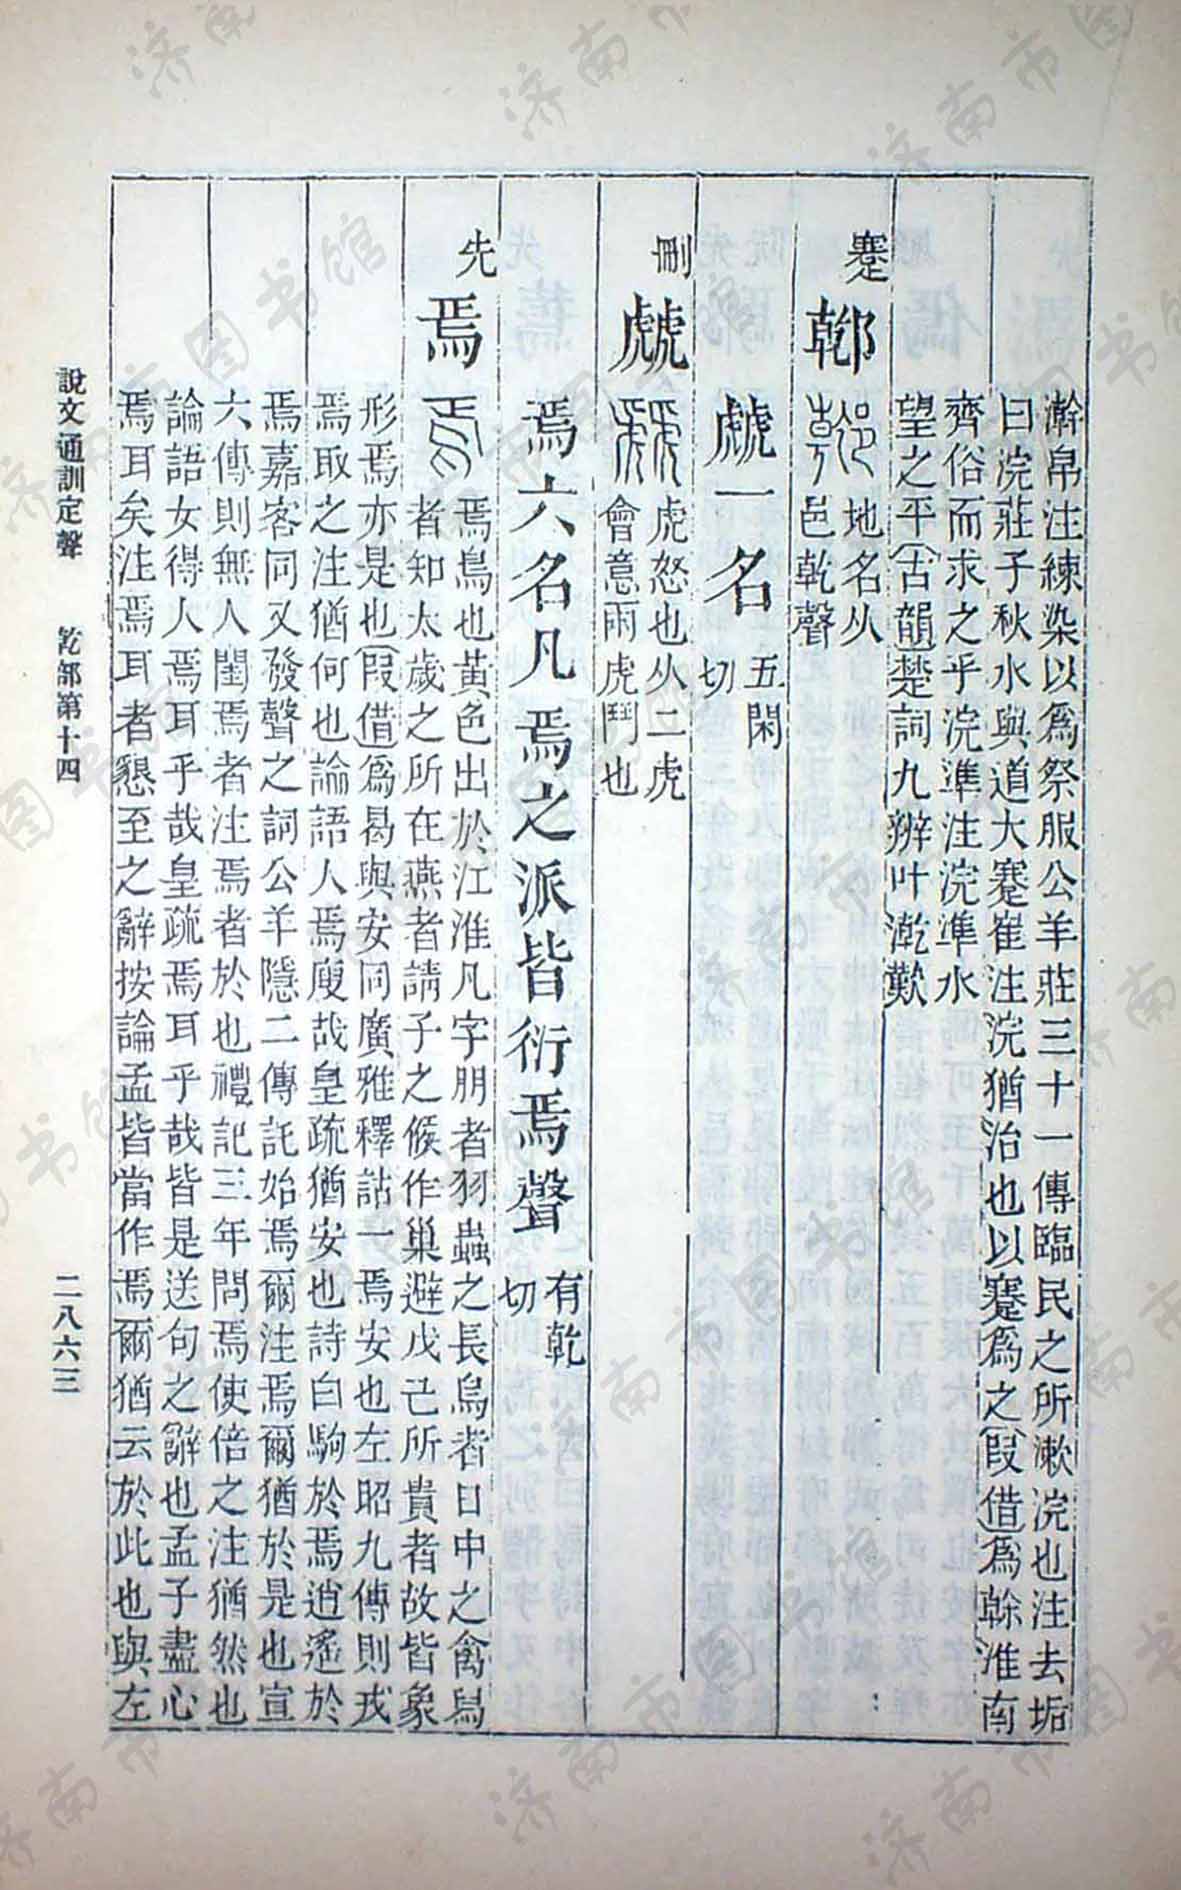 澣帛注練染以為祭服公羊莊三十一傳臨民之所漱浣也注去垢
曰浣莊子秋水與道大蹇崔注浣猶治也以蹇為之叚借為榦淮南
齊俗而求之乎浣準注浣準水
望之平古韻楚詞九辨叶漧歎
蹇
地名从
邑乾聲
虤一名
五閑
切
刪
虤
虎怒也从二虎
會意兩虎鬥也
焉六名凡焉之派皆衍焉聲
有乾
切
先
焉
焉鳥也黃色出於江淮凡字朋者羽蟲之長烏者日中之禽舄
者知太歲之所在燕者請子之候作巢避戊己所貴者故皆象
形焉亦是也叚借為曷與安同廣雅釋詁一焉安也左昭九傳則戎
焉取之注猶何也論語人焉廋哉皇疏猶安也詩白駒於焉逍遙於
焉嘉客同又發聲之詞公羊隱二傳託始焉爾注焉爾猶於是也宣
六傳則無人閨焉者注焉者於也禮記三年問焉使倍之注猶然也
論語女得人焉耳乎哉皇疏焉耳乎哉皆是送句之辭也孟子盡心
焉耳矣注焉耳者懇至之辭按論孟皆當作焉爾猶云於此也與左
說文通訓定聲 乾部第十四 二八六三
济南市图书馆